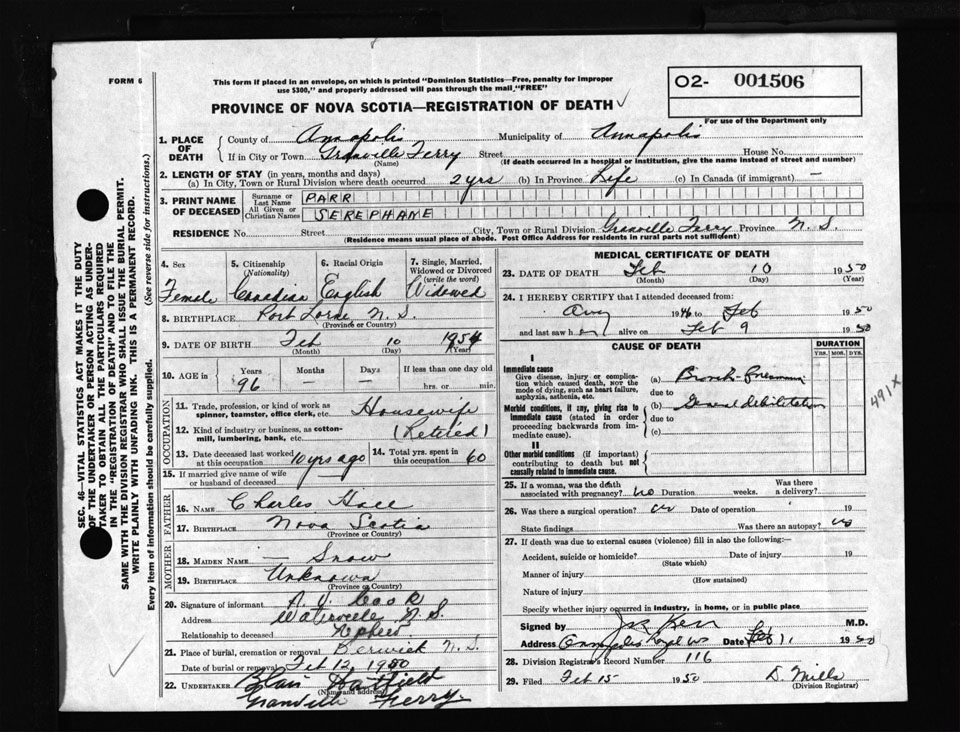 FORM 6
This form if placed in an envelope, on which is printed "Dominion Statistics—Free, penalty for improper
use $300," and properly addressed will pass through the mail "FREE"
PROVINCE OF NOVA SCOTIA—REGISTRATION OF DEATH
O2- 001506
For use of the Department only
1. PLACE OF DEATH
County of Annapolis Municipality of Annapolis
If in City or Town Granville Ferry Street House No.
(Name) (If death occurred in a hospital or institution, give the name instead of street and number)
2. LENGTH OF STAY (in years, months and days)
(a) In City, Town or Rural Division where death occurred 2 yrs (b) In Province Life (c) In Canada (if immigrant) —
3. PRINT NAME OF DECEASED
Surname or Last Name PARR
All Given or Christian Names SEREPHANE
RESIDENCE No. Street City, Town or Rural Division Granville Ferry Province N. S.
(Residence means usual place of abode. Post Office Address for residents in rural parts not sufficient)
4. Sex
Female
5. Citizenship
(Nationality)
Canadian
6. Racial Origin
English
7. Single, Married, Widowed or Divorced
(write the word)
Widowed
8. BIRTHPLACE Port Lorne N. S.
(Province or Country)
9. DATE OF BIRTH Feb 10 1854
(Month) (Day) (Year)
10. AGE in Years Months Days If less than one day old
96 — — hrs. or min.
OCCUPATION
11. Trade, profession, or kind of work as
spinner, teamster, office clerk, etc. Housewife
12. Kind of industry or business, as cotton-
mill, lumbering, bank, etc. (Retired)
13. Date deceased last worked
at this occupation 10 yrs ago
14. Total yrs. spent in
this occupation 60
15. If married give name of wife
or husband of deceased
FATHER
16. Name Charles Hall
17. BIRTHPLACE Nova Scotia
(Province or Country)
MOTHER
18. MAIDEN NAME — Snow
19. BIRTHPLACE Unknown
(Province or Country)
20. Signature of informant Cook
Address Waterville N S
Relationship to deceased Nephew
21. Place of burial, cremation or removal Berwick N. S.
Date of burial or removal Feb 12, 1950
22. UNDERTAKER Blair Hatfield
(Name and address)
Granville Ferry
MEDICAL CERTIFICATE OF DEATH
23. DATE OF DEATH Feb 10 1950
(Month) (Day) (Year)
24. I HEREBY CERTIFY that I attended deceased from:
Aug 1946 to Feb 1950
and last saw h er alive on Feb 9 1950
CAUSE OF DEATH
DURATION
YRS. MOS. DYS.
I
Immediate cause
Give disease, injury or complica-
tion which caused death, NOT the
mode of dying, such as heart failure,
asphyxia, asthenia, etc.
(a)
due to
Morbid conditions, if any, giving rise to
immediate cause (stated in order
proceeding backwards from im-
mediate cause).
(b) General debilitation
due to
(c)
491X
II
Other morbid conditions (if important)
contributing to death but not
causally related to immediate cause.
25. If a woman, was the death
associated with pregnancy? no Duration weeks. Was there
a delivery?
26. Was there a surgical operation? no Date of operation 19
State findings Was there an autopsy? no
27. If death was due to external causes (violence) fill in also the following:—
Accident, suicide or homicide? Date of injury 19
(State which)
Manner of injury
(How sustained)
Nature of injury
Specify whether injury occurred in industry, in home, or in public place
Signed by Jas Kerr M.D.
Address Annapolis Royal NS Date Feb 11 1950
28. Division Registrar's Record Number 116
29. Filed Feb 15 1950 D. Mills
(Division Registrar)
SEC. 46—VITAL STATISTICS ACT MAKES IT THE DUTY
OF THE UNDERTAKER OR PERSON ACTING AS UNDER-
TAKER TO OBTAIN ALL THE PARTICULARS REQUIRED
IN THE "REGISTRATION OF DEATH" AND TO FILE THE
SAME WITH THE DIVISION REGISTRAR WHO SHALL ISSUE THE BURIAL PERMIT.
WRITE PLAINLY WITH UNFADING INK. THIS IS A PERMANENT RECORD.
Every item of information should be carefully supplied. (See reverse side for instructions.)